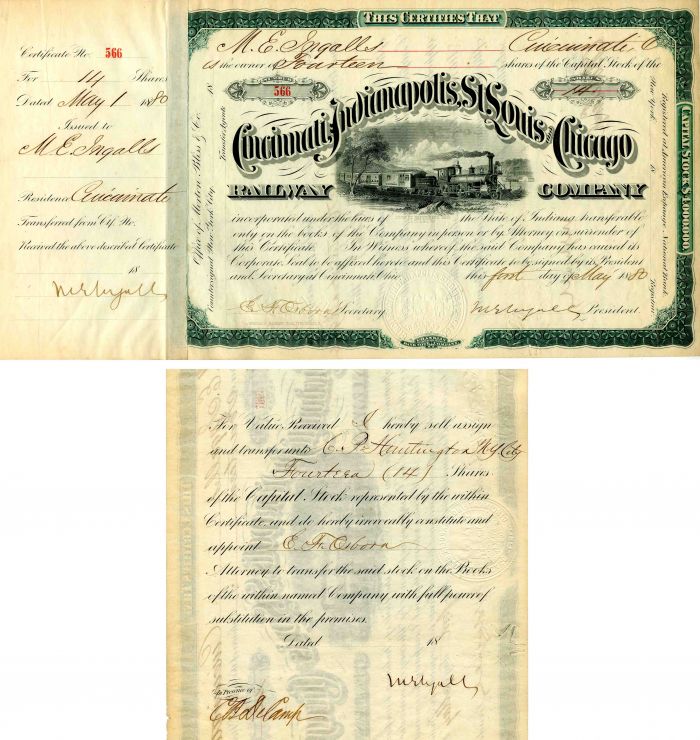 Certificate No. 566
For 14 Shares
Dated May 1 1880
Issued to
M. E. Ingalls
Residence Cincinnati
Transferred from Ctf. No.
Received the above described Certificate
18
M E Ingalls
THIS CERTIFIES THAT
M. E. Ingalls Cincinnati O
is the owner of Fourteen shares of the Capital Stock of the
566
14
Cincinnati, Indianapolis, St. Louis and Chicago
RAILWAY COMPANY
incorporated under the laws of the State of Indiana transferable
only on the books of the Company in person or by Attorney on surrender of
this Certificate. In Witness whereof the said Company has caused its
Corporate Seal to be affixed hereto and this Certificate to be signed by its President
and Secretary at Cincinnati Ohio this first day of May 1880
E. F. Osborn Secretary M E Ingalls President
Office of Morton, Bliss & Co.
Countersigned New York City.
Transfer Agents
18
Registered at American Exchange National Bank
New York 18
Registrar
CAPITAL STOCK $4,000,000.
For Value Received I hereby sell assign
and transfer unto C. P. Huntington N.Y. City
Fourteen (14) Shares
of the Capital Stock represented by the within
Certificate, and do hereby irrevocably constitute and
appoint E. F. Osborn
Attorney to transfer the said stock on the Books
of the within named Company with full power of
substitution in the premises.
Dated 18
M E Ingalls
In Presence of